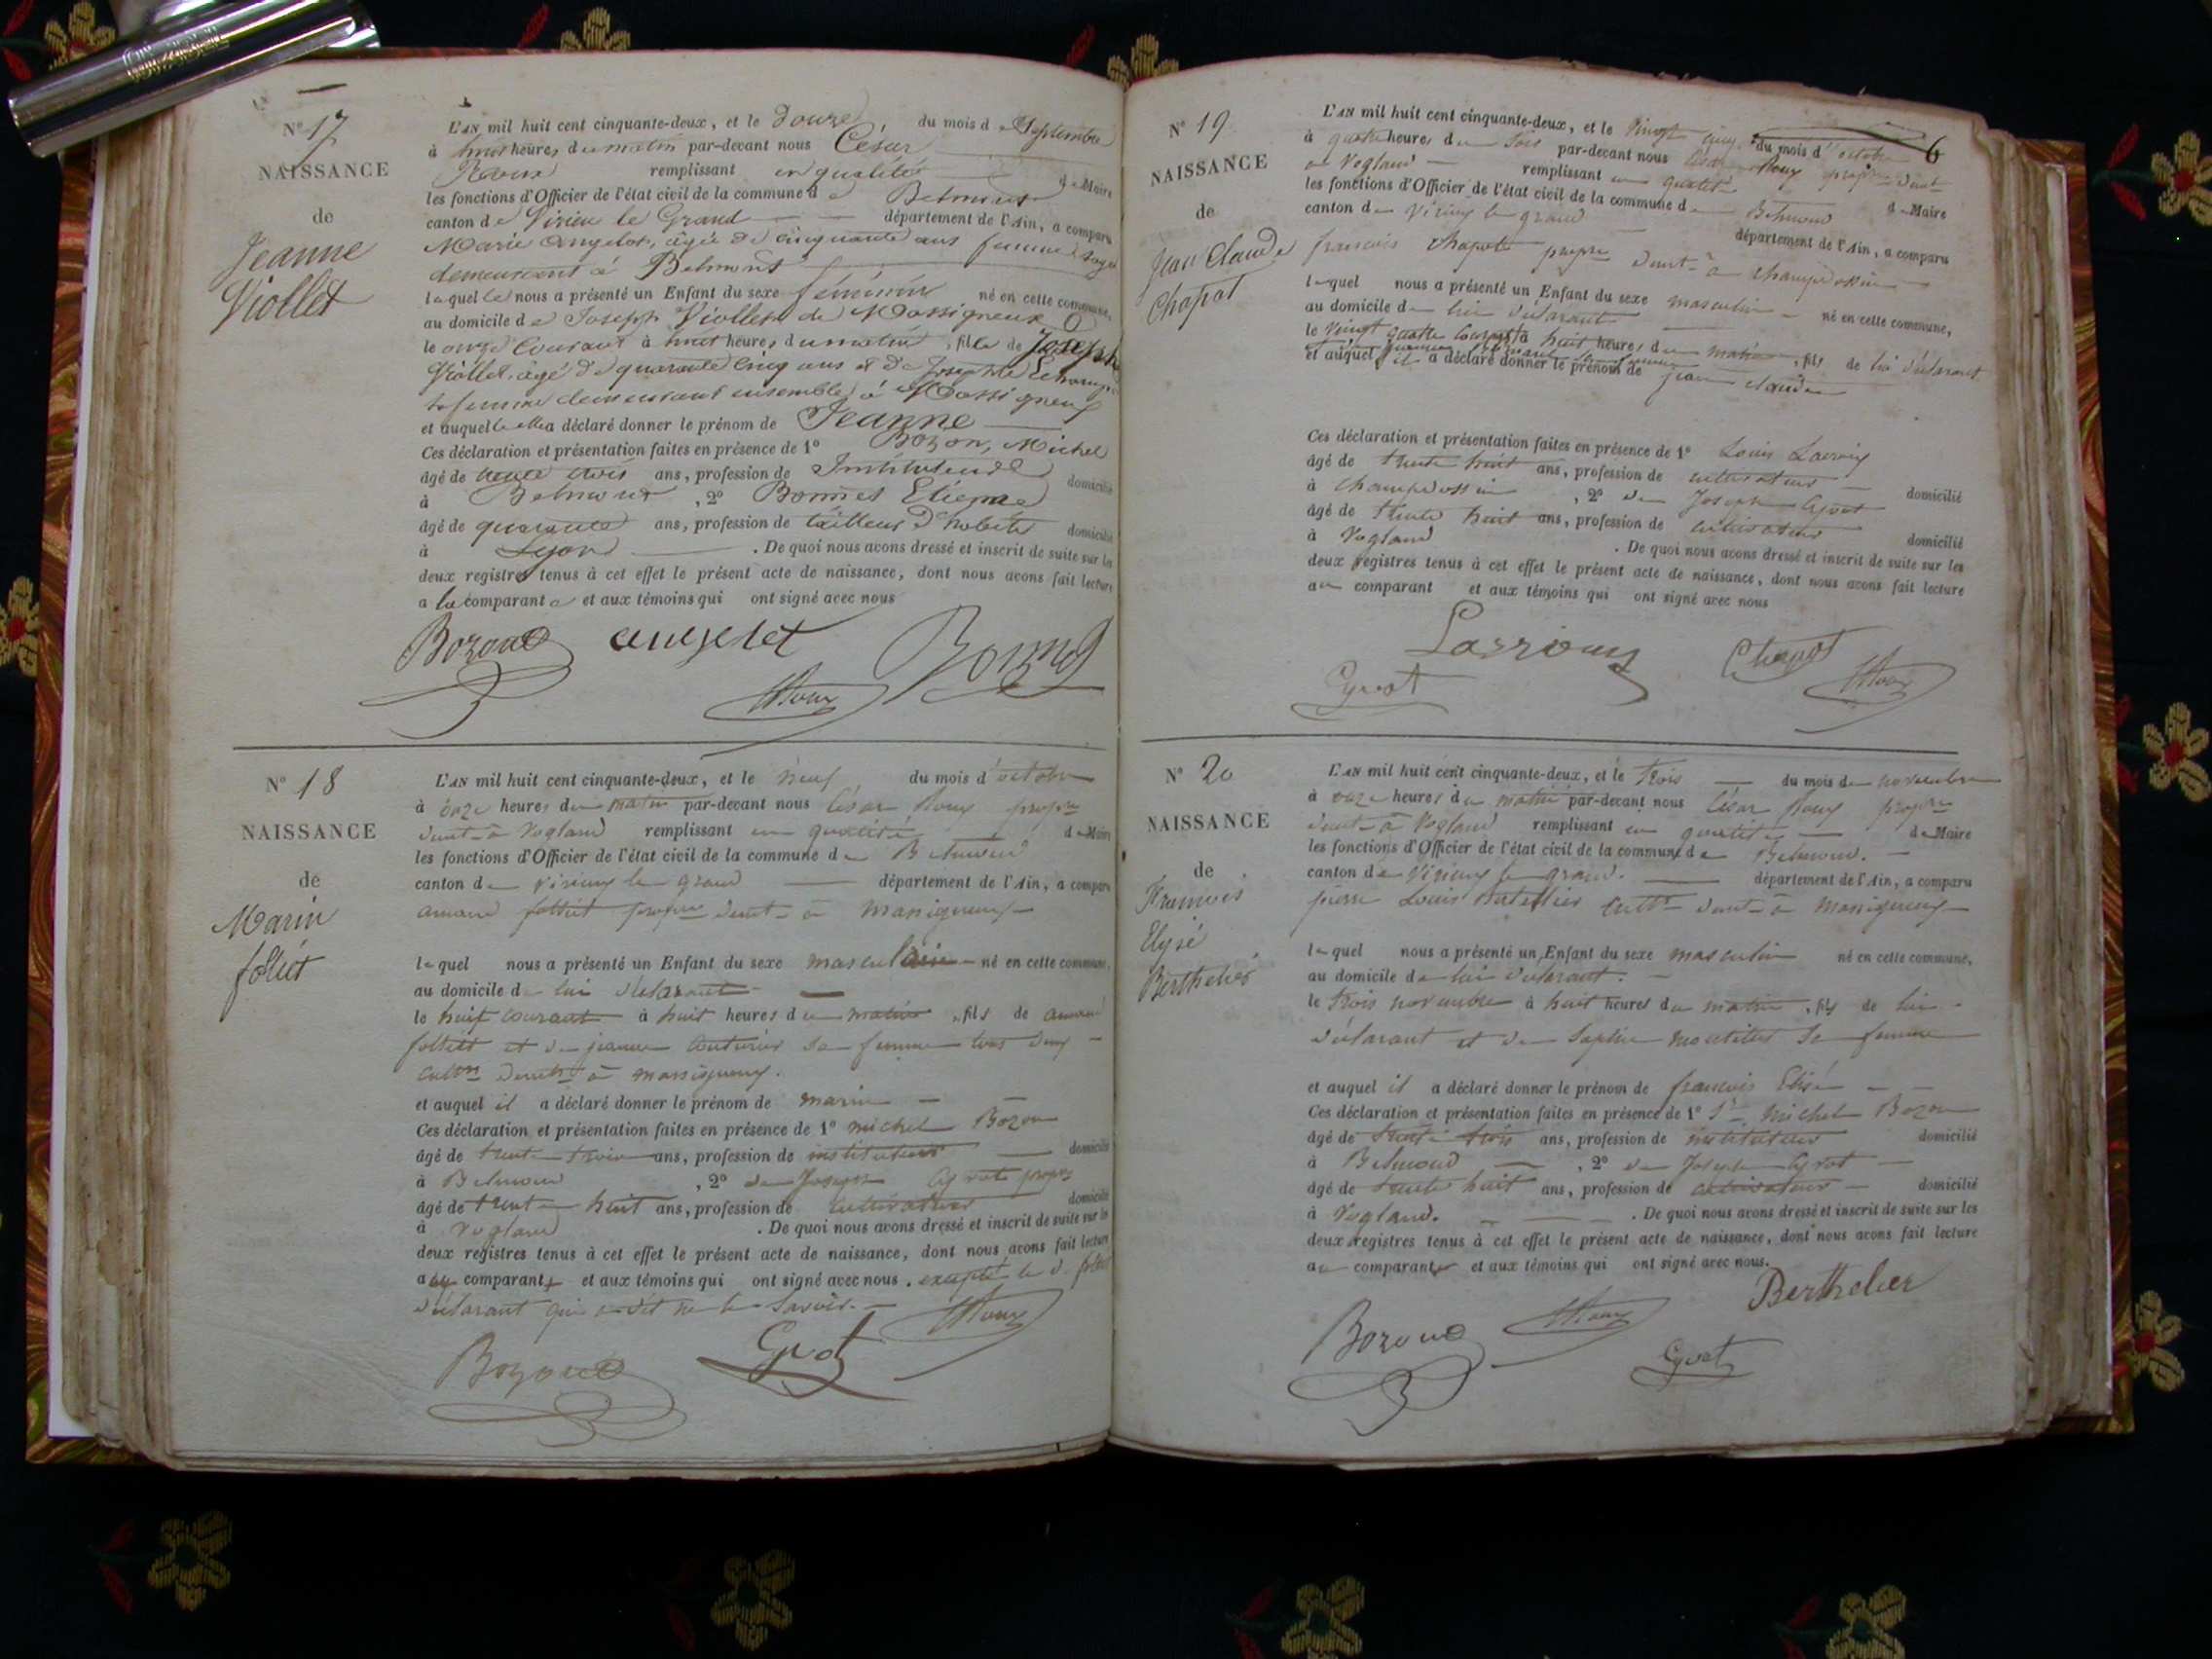 N° 17
NAISSANCE
de
Jeanne
Viollet
L'AN mil huit cent cinquante-deux, et le Douze du mois de Septembre
à huit heures du matin par-devant nous César
Roux remplissant en qualité de Maire
les fonctions d'Officier de l'état civil de la commune de Belmont
canton de Virieu le Grand département de l'Ain, a comparu
Marie Angelot, agée de cinquante ans femme sage
demeurant à Belmont
laquelle nous a présenté un Enfant du sexe féminin né en cette commune,
au domicile de Joseph Viollet de Massigneux
le onze courant à huit heures du matin, fille de Joseph
Viollet, agé de quarante cinq ans et de Josephte
sa femme demeurant ensemble à Massigneux
et auquel elle a déclaré donner le prénom de Jeanne
Ces déclaration et présentation faites en présence de 1° Bozon, Michel
âgé de trente trois ans, profession de Instituteur domicilié
à Belmont, 2° Bonnet Etienne
âgé de quarante ans, profession de tailleur d'habits domicilié
à Lyon. De quoi nous avons dressé et inscrit de suite sur les
deux registres tenus à cet effet le présent acte de naissance, dont nous avons fait lecture
a la comparante et aux témoins qui ont signé avec nous
Bozon angelet Bonnet
Roux
N° 18
NAISSANCE
de
Marin
folliet
L'AN mil huit cent cinquante-deux, et le neuf du mois d'octobre
à onze heures du matin par-devant nous César Roux propre
demt à Vogland remplissant en qualité de Maire
les fonctions d'Officier de l'état civil de la commune de Belmond
canton de virieux le grand département de l'Ain, a comparu
amand folliet propre demt à Massigneux
lequel nous a présenté un Enfant du sexe masculain né en cette commune,
au domicile de lui déclarant
le huit courant à huit heures du matin, fils de amand
folliet et de jeanne Couturier sa femme tous deux
cultrs demts à massigneux.
et auquel il a déclaré donner le prénom de marin
Ces déclaration et présentation faites en présence de 1° michel Bozon
âgé de trente trois ans, profession de instituteur domicilié
à Belmond, 2° de Joseph Gyvot propre
âgé de trente huit ans, profession de cultivateur domicilié
à Vogland. De quoi nous avons dressé et inscrit de suite sur les
deux registres tenus à cet effet le présent acte de naissance, dont nous avons fait lecture
a comparant et aux témoins qui ont signé avec nous. excepté le d. folliet
déclarant qui a dit ne le savoir.
Roux
Bozon Gyvot
6
N° 19
NAISSANCE
de
Jean Claude
Chapot
L'AN mil huit cent cinquante-deux, et le vingt cinq du mois d'octobre
à quatre heures du soir par-devant nous César Roux propre demt
à Vogland remplissant en qualité de Maire
les fonctions d'Officier de l'état civil de la commune de Belmond
canton de virieux le grand département de l'Ain, a comparu
francois chapot propre demt à champdossin
lequel nous a présenté un Enfant du sexe masculin né en cette commune,
au domicile de lui déclarant
le vingt quatre courant à huit heures du matin, fils de lui déclarant
et auquel il a déclaré donner le prénom de jean claude
Ces déclaration et présentation faites en présence de 1° Louis
âgé de trente huit ans, profession de cultivateur domicilié
à champdossin, 2° de Joseph Gyvot
âgé de trente huit ans, profession de cultivateur domicilié
à Vogland. De quoi nous avons dressé et inscrit de suite sur les
deux registres tenus à cet effet le présent acte de naissance, dont nous avons fait lecture
au comparant et aux témoins qui ont signé avec nous
Chapot
Gyvot Roux
N° 20
NAISSANCE
de
Francois
Elysé
Berthelier
L'AN mil huit cent cinquante-deux, et le trois du mois de novembre
à onze heures du matin par-devant nous César Roux propre
demt à Vogland remplissant en qualité de Maire
les fonctions d'Officier de l'état civil de la commune de Belmond.
canton de Virieux le grand. département de l'Ain, a comparu
pierre Louis Bertellier cultr demt à Massigneux
lequel nous a présenté un Enfant du sexe masculin né en cette commune,
au domicile de lui déclarant.
le trois novembre à huit heures du matin, fils de lui
déclarant et de Sophie montillet sa femme
et auquel il a déclaré donner le prénom de francois Elisé
Ces déclaration et présentation faites en présence de 1° Sr Michel Bozon
âgé de trente trois ans, profession de instituteur domicilié
à Belmond, 2° de Joseph Gyvot
âgé de trente huit ans, profession de cultivateur domicilié
à Vogland. De quoi nous avons dressé et inscrit de suite sur les
deux registres tenus à cet effet le présent acte de naissance, dont nous avons fait lecture
au comparant et aux témoins qui ont signé avec nous.
Berthelier
Bozon Roux
Gyvot